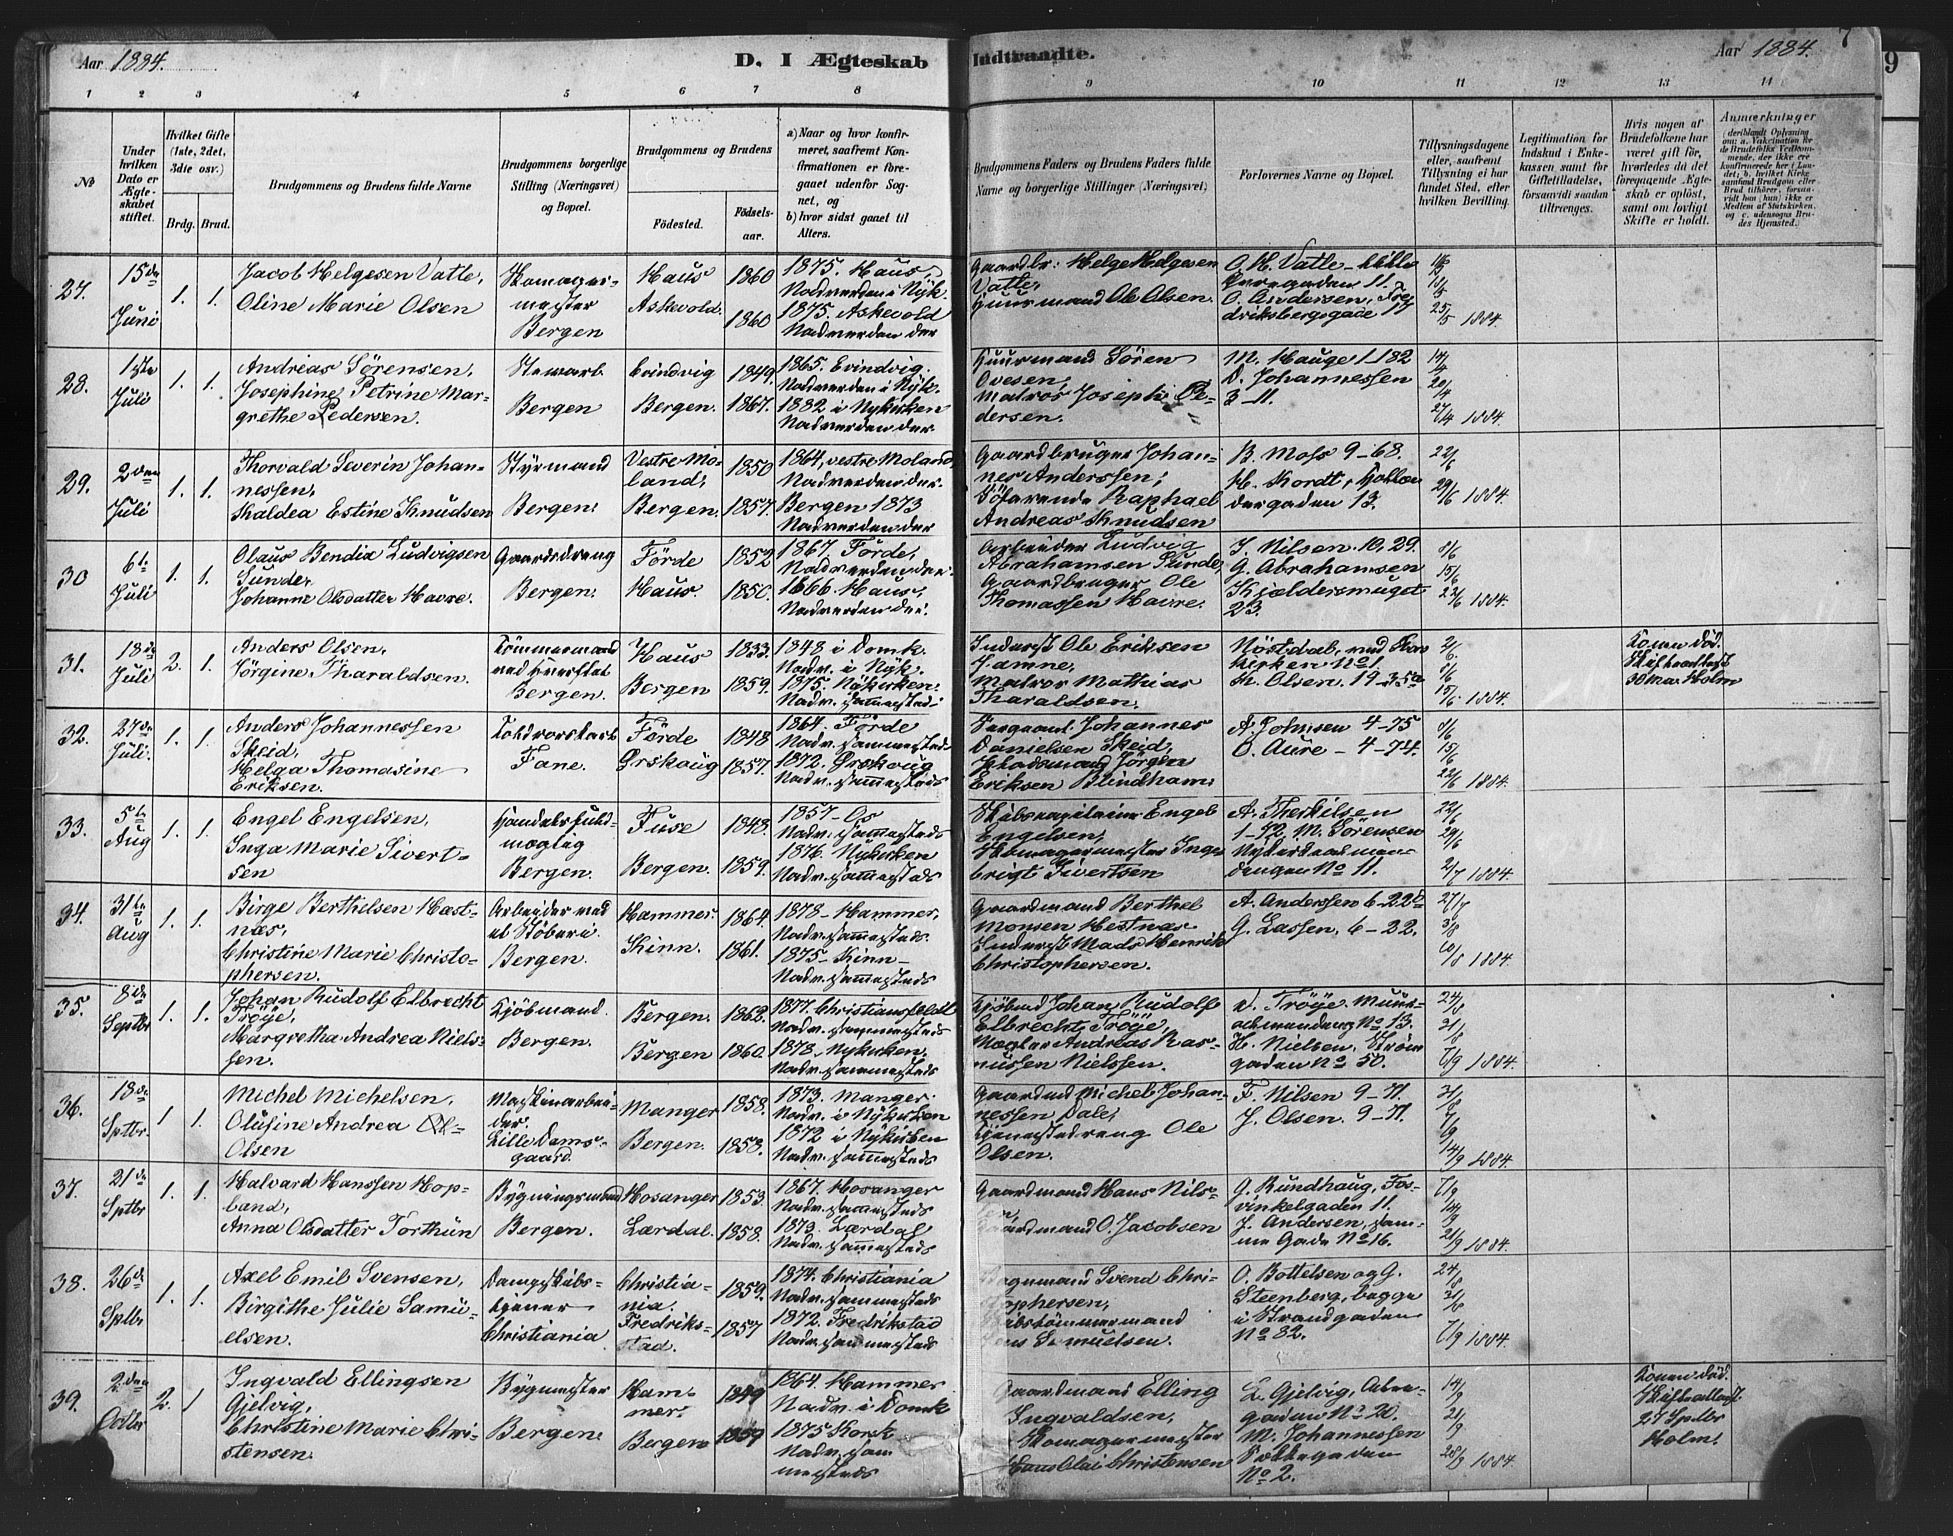 Aar 1884.
D. I Ægteskab Indtraadte.
Aar 1884.
7
9
1 2 3 4 5 6 7 8 9 10 11 12 13 14
No
Under hvilken Dato er Ægteskabet stiftet.
Hvilket Gifte (1ste, 2det, 3die osv.)
Brdg. Brud.
Brudgommens og Brudens fulde Navne
Brudgommens borgerlige Stilling (Næringsvei) og Bopæl.
Brudgommens og Brudens
Födested. Födsels-aar.
a) Naar og hvor konfirmeret, saafremt Konfirmationen er foregaaet udenfor Sognet, og
b) hvor sidst gaaet til Alters.
Brudgommens Faders og Brudens Faders fulde Navne og borgerlige Stillinger (Næringsvei)
Forlovernes Navne og Bopæl.
Tillysningsdagene eller, saafremt Tillysning ei har fundet Sted, efter hvilken Bevilling.
Legitimation for Indskud i Enkekassen samt for Giftetilladelse, forsaavidt saadan tiltrænges.
Hvis nogen af Brudefolkene har været gift før, hvorledes da det foregaaende Ægteskab er opløst, samt om lovligt Skifte er holdt.
Anmærkninger
27. 15de Juni 1. 1.
Jacob Helgesen Vatle,
Oline Marie Olsen
Skomagermester
Bergen
Haus 1860
Askevold. 1860
1875. Haus,
Nadverden i Nyk.
1875. Askevold
Nadverden der
Gaardbr: Helge Helgesen
Vatle,
Huusmand Ole Olsen.
O. H. Vatle
O. Andersen, Fredriksbergsgade 17
25/5 1884.
28. 1ste Juli 1. 1.
Andreas Sörensen,
Josephine Petrine Margrethe Pedersen.
Bergen
Evindvig 1849.
Bergen. 1867.
1865. Evindvig.
Nadverden i Nyk.
1882 i Nykirken
Nadverden der
Huusmand Sören
Ovesen,
Matros Joseph Pedersen.
M. Hauge 1182
D. Johannessen
3-11.
14/4
20/4
27/4 1884.
29. 2den Juli 1. 1.
Thorvald Severin Johannessen,
Thaldea Estine Knudsen
Styrmand
Bergen.
Vestre Moland, 1850
Bergen. 1857.
1864, vestre Moland,
Nadverden der.
Bergen 1873
Nadverden der
Gaardbruger Johannes Anderssen,
Söfarende Raphael
Andreas Knudsen
B. Moss 9-68.
H. Kordt, Hollændergaden 13.
22/6
29/6 1884.
30 6te Juli 1. 1.
Olaus Bendix Ludvigsen
Sunde,
Johanne Olsdatter Havre.
Gaardsdreng
Bergen.
Förde 1852
Haus. 1850.
1867. Förde,
Nadverden der.
1866 Haus,
Nadverden der.
Arbeider Ludvig
Abrahamsen Sunde,
Gaardbruger Ole
Thomassen Havre.
J. Nilsen. 10, 29.
G. Abrahamsen
Kjeldersmuget
23.
8/6
15/6
22/6 1884.
31. 18de Juli 2. 1.
Anders Olsen,
Jörgine Tharaldsen.
Tömmermand
Bergen.
Haus 1833.
Bergen 1859.
1848 i Domk.
Nadv. i Nyk.
1875. Nykirken.
Nadv. sammesteds
Inderst Ole Eriksen
Jamne,
Matros Mathias
Tharaldsen.
No 1.
K. Olsen. 19-35a
2/6
8/6
15/6. 1884.
Konen död.
Skifteattest
30 Mai Holm
32. 27de Juli. 1. 1.
Anders Johannessen
Skeid,
Helga Thomasine
Eriksen.
Fane.
Förde 1848
Ørskoug 1857.
1864. Förde
Nadv. sammesteds
1872. Ørskoug
Nadv. sammesteds
Sergeant Johannes
Danielsen Skeid,
Pladsmand Jörgen
Eriksen Blindheim.
A. Johnsen 4-75
O. Aure - 4-74.
8/6
15/6
22/6 1884.
33. 5te Aug 1. 1.
Engel Engelsen,
Inga Marie Sivertsen
Handelsfuldmægtig
Bergen.
Fuse 1848.
Bergen. 1859.
1857 - Os
Nadv. sammesteds
1876. Nykirken
Nadv. sammesteds
Skibscapitaine Engel
Engelsen,
Skomagermester Ingebrigt Sivertsen
A. Therkilsen
1-42, M. Sörensen
No 11.
22/6
29/6
2/7 1884.
34. 31te Aug 1. 1.
Birge Berthelsen Hæstnæs,
Christine Marie Christophersen.
Arbeider ved
et Stöberi.
Bergen.
Hammer. 1864.
Kinn. 1861.
1878 - Hammer,
Nadv. sammesteds.
1875 - Kinn -
Nadv. sammesteds
Gaardmand Berthel
Monsen Hestnæs
Inderst Mads Henrik
Christophersen.
A. Anderssen 6-22
G. Lassen. 6-22.
27/7
3/8
10/8 1884.
35. 8de Septbr 1. 1.
Johan Rudolf Elbrecht
Tröye,
Margretha Andrea Nielssen.
Kjöbmand.
Bergen.
Bergen. 1862.
Bergen 1860.
1877. Christiansfeldt
Nadv. sammesteds
1878. Nykirken.
Nadv. sammesteds
Kjöbmd Johan Rudolf
Elbrecht Tröye,
Mægler Andreas Rasmussen Nielssen.
No 13.
H. Nielsen, Strömgaden No 50.
24/8
31/8
7/9 1884.
36. 18de Sptbr. 1 1.
Michel Michelsen,
Olufine Andrea Ol-
Olsen
Maskinarbeider.
Lille Damsgaard.
Manger 1858.
Bergen. 1853.
1873. Manger.
Nadv. i Nykirken
1872 i Nykirken
Nadv. sammesteds
Gaardmd Michel Johannessen Dale,
Tjenestedreng Ole
Olsen.
F. Nilsen 9-71.
J. Olsen. 9-71.
31/8
7/9
14/9 1884.
37. 21de Sptbr 1. 1.
Halvard Hanssen Hopland,
Anna Olsdatter Torthun
Bygningsmand
Bergen.
Hosanger 1853.
Lærdal. 1858.
1867. Hosanger
Nadv. sammesteds
1873. Lærdal
Nadv. sammesteds
Gaardmand Hans Nilssen,
Gaardmand O. Jacobsen
G. Rundhaug, Fosvinkelgaden 11.
J. Andersen, samme Gade No 16.
7/9
14/9
21/9 1884.
38. 26de Sptbr 1. 1.
Axel Emil Svensen,
Birgithe Julie Samuelsen.
Dampskibstjener
Christiania.
Christiania. 1859.
Fredrikstad. 1857
1874. Christiania
Nadv. sammesteds
1872. Fredrikstad
Nadv. sammesteds
Svend Christophersen,
Skibstömmermand
Samuelsen.
O. Bottelsen og G.
Steenberg, begge
i Strandgaden
No 82.
24/8
31/8
7/9 1884.
39. 2den Octbr 2. 1
Ingvald Ellingsen
Gjelvig,
Christine Marie Christensen.
Bygmester
Bergen.
Hammer. 1849
Bergen 1859
1864. Hammer
Nadv. i Domk
1875 Korsk
Nadv. sammesteds
Gaardmand Elling
Ingvaldsen,
Skomagermester
Hans Olai Christensen
L. Gjelvig,
No 20.
M. Johannessen
No 2.
14/9
21/9
28/9 1884.
Konen död.
Skifteattest
27 Sptbr
Holm.